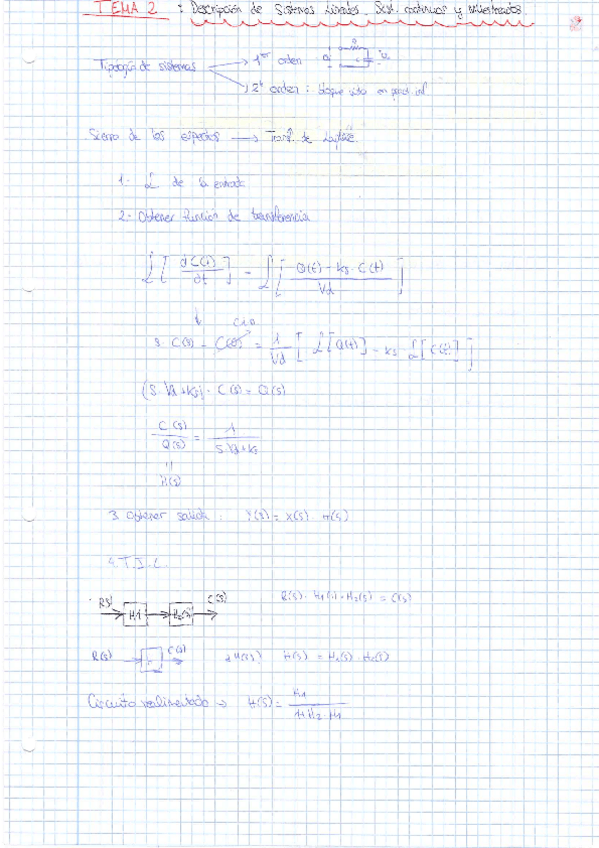 TEMA 2 : Descripción de Sistemas Lineales. Sist. continuos y muestreados.
Tipología de sistemas → 1er orden
→ 2º orden : bloque visto en pract inf
de los espectos → Transf. de Laplace
1.- L de la entrada
2.- Obtener función de transferencia
L[dC(t)/dt] = L[(Q(t) - ks · C(t))/Vd]
s · C(s) - C(0) = 1/Vd [L[Q(t)] - ks L[C(t)]]
(s · Vd + ks) · C(s) = Q(s)
C(s)/Q(s) = 1/(s · Vd + ks)
"
H(s)
3. Obtener salida : Y(s) = X(s) · H(s)
4. T.I.L.
R(s) → H1 → H2(s) → C(s) R(s) · H1(s) · H2(s) = C(s)
R(s) → C(s) ¿H(s)? H(s) = H1(s) · H2(s)
Circuito realimentado → H(s) = H1/(1+H2·H1)